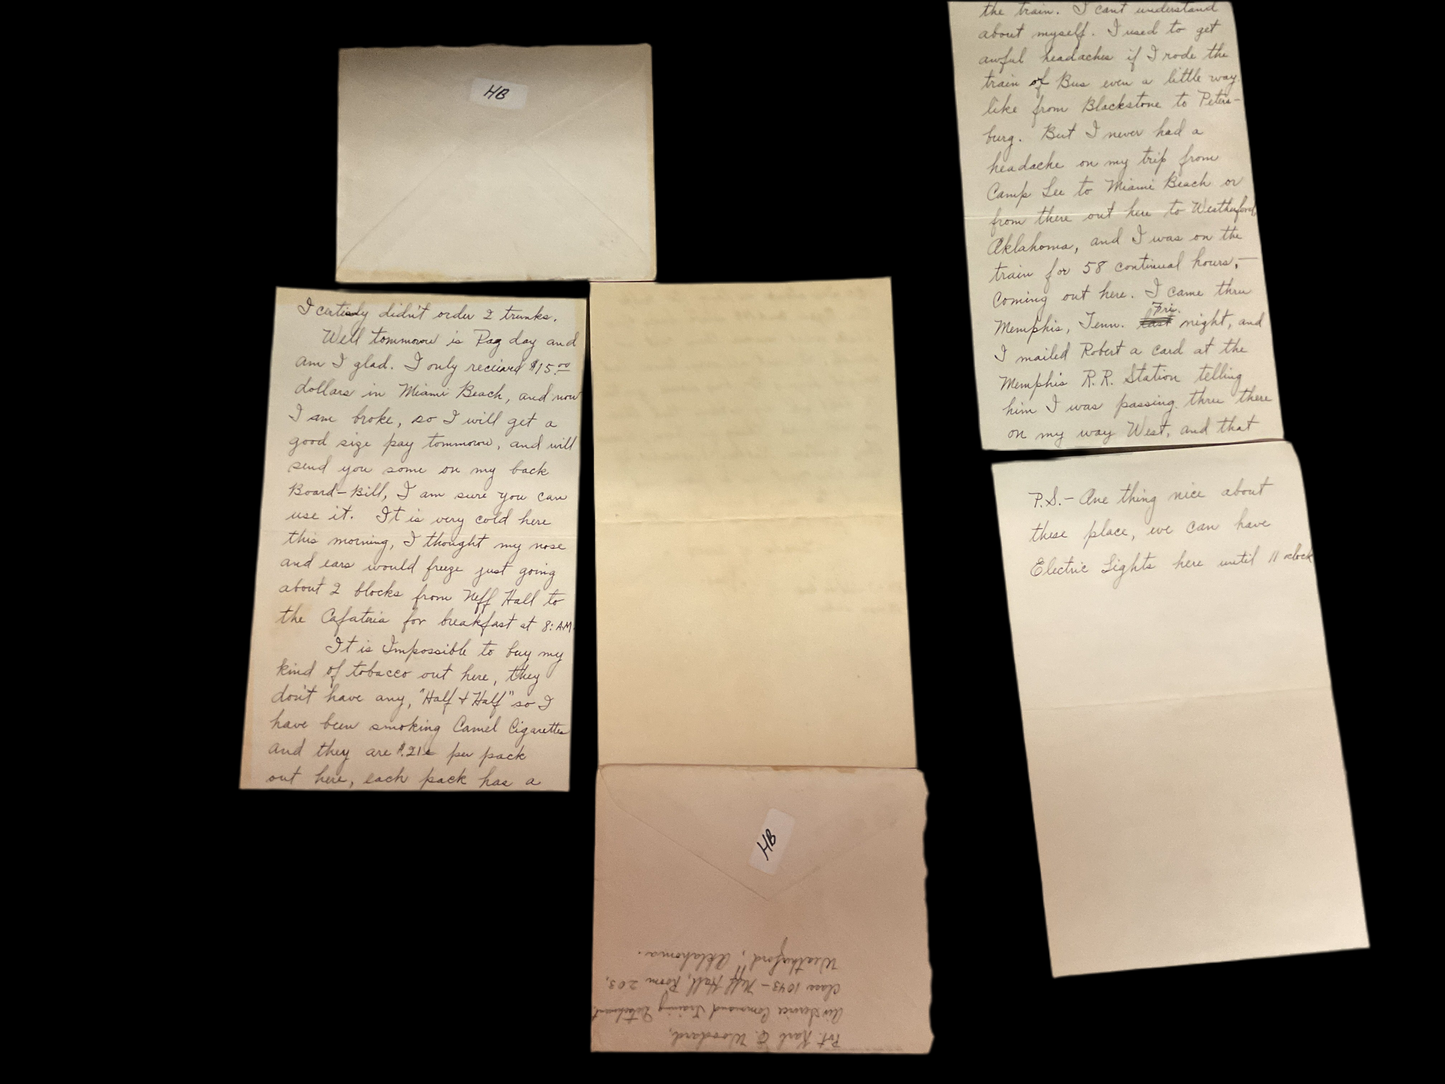 HB
I certiesly didn't order 2 trunks.
Well tommorow is Pay day and
am I glad. I only recieved $15.00
dollars in Miami Beach, and now
I am broke, so I will get a
good size pay tommorow, and will
send you some on my back
Board-Bill, I am sure you can
use it. It is very cold here
this morning, I thought my nose
and ears would freeze just going
about 2 blocks from Neff Hall to
the Cafatria for breakfast at 8:AM.
It is Impossible to buy my
kind of tobacco out here, they
don't have any, "Half & Half" so I
have been smoking Camel Cigarettes
and they are $.21¢ per pack
out here, each pack has a
HB
Pvt. Karl E. Woodard,
Air Service Command Training Detachment
Class 1043-Neff Hall, Room 203,
Weatherford, Oklahoma.
the train. I cant understand
about myself. I used to get
awful headaches if I rode the
train or Bus even a little way
like from Blackstone to Peters-
burg. But I never had a
headache on my trip from
Camp Lee to Miami Beach or
from there out here to Weatherford
Oklahoma, and I was on the
train for 58 continual hours,-
Coming out here. I came thru
Fri.
Memphis, Tenn. last night, and
I mailed Robert a card at the
Memphis R.R. Station telling
him I was passing three there
on my way West, and that
P.S.- One thing nice about
these place, we can have
Electric Lights here until 11 oclock